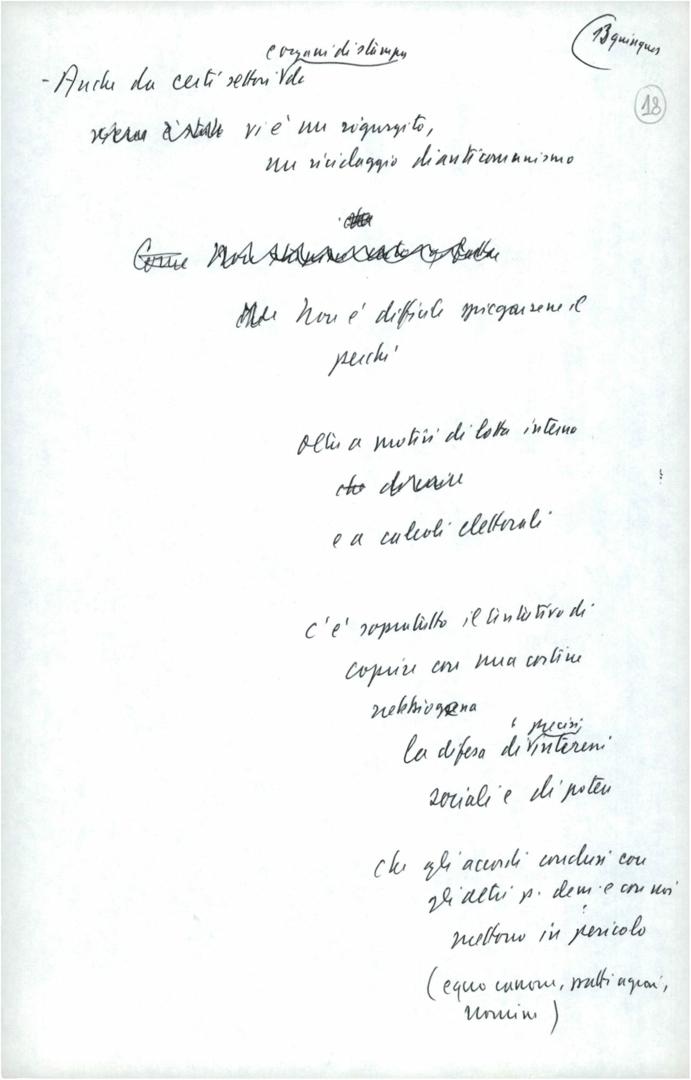 13 quinques
18
e organi di stampa
- Anche da certi settori
vi è un rigurgito,
un riciclaggio di anticomunismo
Come Non
Non è difficile spiegarsene il
perché
oltre a motivi di lotta interna
che
e a calcoli elettorali
c'è sopratutto il tentativo di
coprire con una cortina
nebbiogena
precisi
la difesa di interessi
sociali e di potere
che gli accordi conclusi con
gli altri p. dem. e con noi
mettono in pericolo
(equo canone, patti agrari,
nomine)